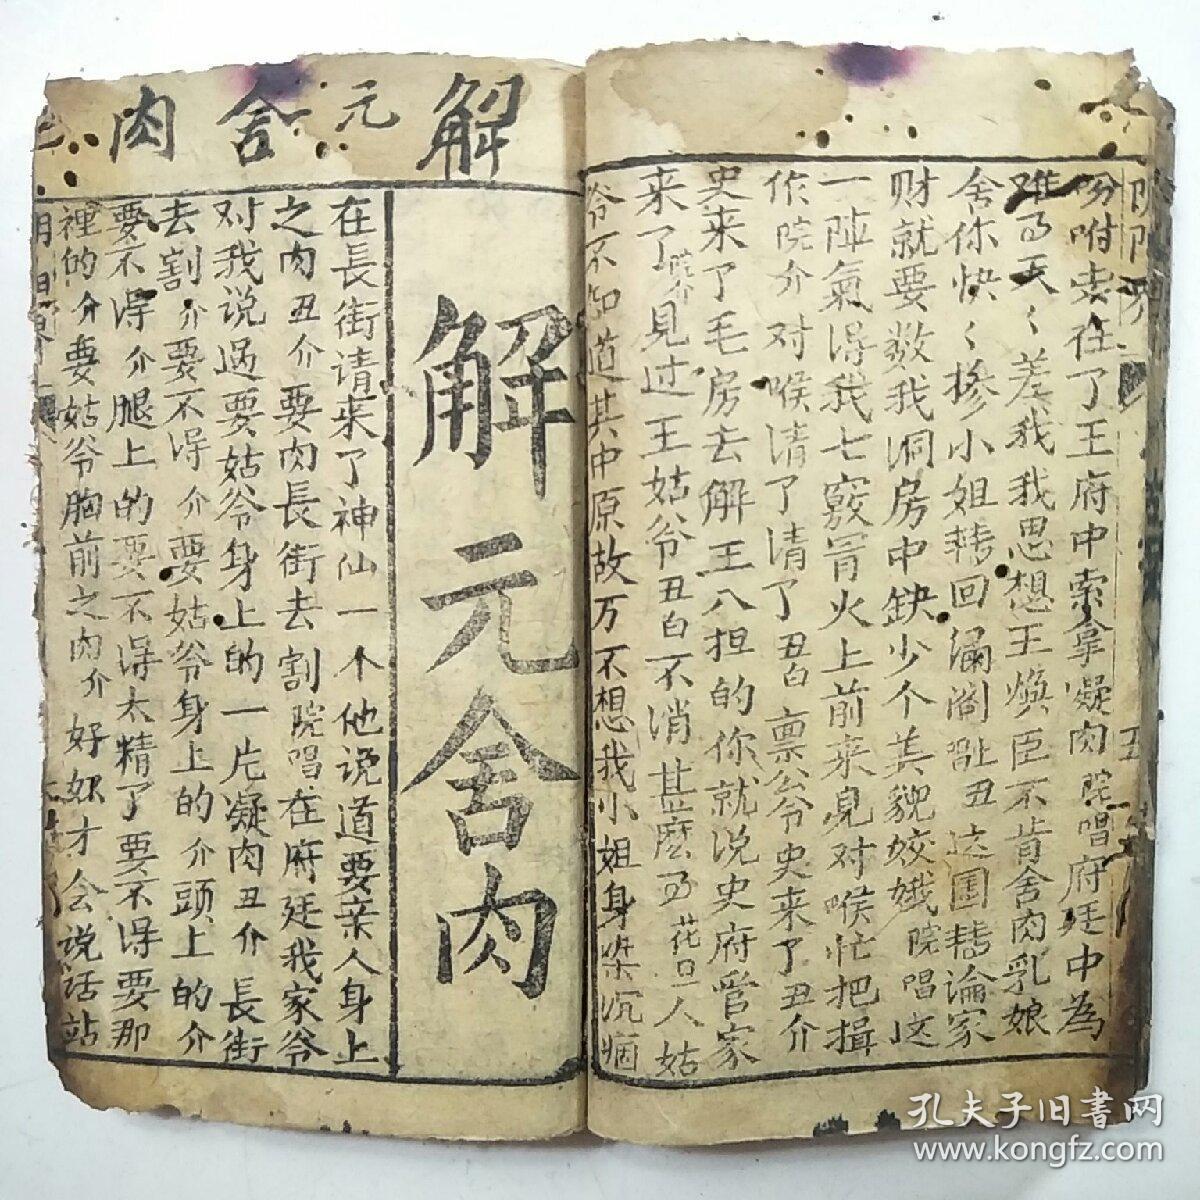 吩咐去在了王府中索拿凝肉院唱府廷中為
天〻羞我我思想王煥臣不肯舍肉乳娘
舍你快〻摻小姐轉回阁丑这国論家
财就要数我洞房中缺少个美貌姣娥院唱这
一陣氣得我七竅冒火上前来見对喉忙把揖
作院介对喉清了清了丑白禀公爷史来了丑介
史来了毛房去解王八担的你就说史府管家
来了見过王姑爷丑白不消甚麽花旦人姑
爷不知道其中原故万不想我小姐身染沉痾
解元舍肉
解元舍肉
在長街请来了神仙一个他说道要亲人身上
之肉丑介要肉長街去割院唱在府廷我家爷
对我说过要姑爷身上的一片凝肉丑介長街
去割介要不得介要姑爷身上的介頭上的介
要不得介腿上的要不得太精了要不得要那
裡的介要姑爷胸前之肉介好奴才会说话站
孔夫子旧書网
www.kongfz.com